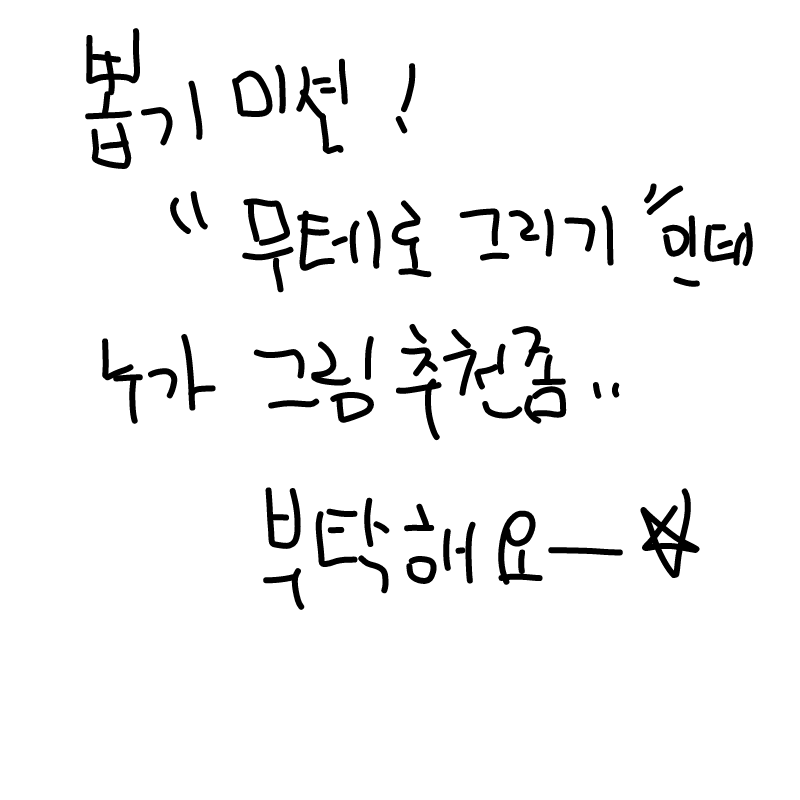 뽑기 미션 !
"무테로 그리기" 인데
누가 그림 추천좀..
부탁해요ㅡ☆